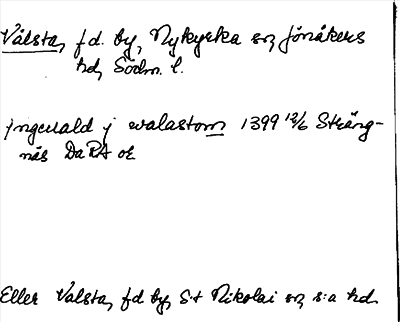 Välsta, fd. by, Nykyrka sn, Jönåkers
hd, Södm. l.
jngeuald j walastom 1399 12/6 Sträng-
näs DaRA or
Eller Valsta, fd by, S:t Nikolai sn, s:a hd.